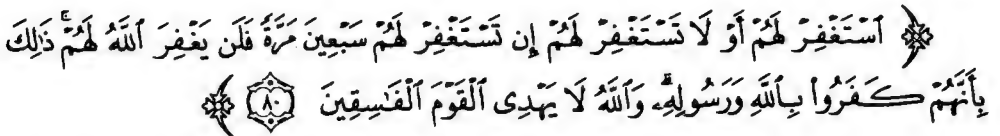 ﴿ ٱسۡتَغۡفِرۡ لَهُمۡ أَوۡ لَا تَسۡتَغۡفِرۡ لَهُمۡ إِن تَسۡتَغۡفِرۡ لَهُمۡ سَبۡعِينَ مَرَّةٗ فَلَن يَغۡفِرَ ٱللَّهُ لَهُمۡۚ ذَٰلِكَ
بِأَنَّهُمۡ كَفَرُواْ بِٱللَّهِ وَرَسُولِهِۦۗ وَٱللَّهُ لَا يَهۡدِى ٱلۡقَوۡمَ ٱلۡفَٰسِقِينَ ٨٠ ﴾